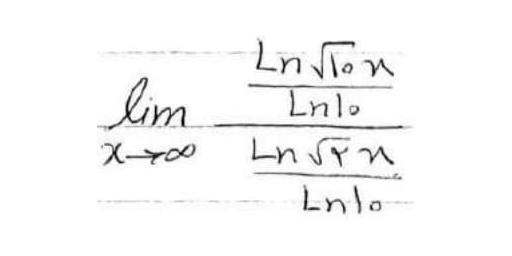 lim x→∞
Ln √10 x
Ln 10
Ln √2 x
Ln 10